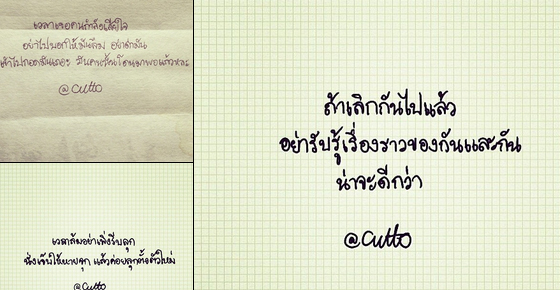 เวลาเจอคนกำลังเสียใจ
อย่าไปบอกให้มันลืม อย่าด่ามัน
เข้าไปกอดมันเถอะ มันคงร้องไห้มาพอแล้วหละ
@cutto
เวลาล้มอย่าเพิ่งรีบลุก
นั่งเจ็บให้หายจุก แล้วค่อยลุกตั้งตัวใหม่
@cutto
ถ้าเลิกกันไปแล้ว
อย่ารับรู้เรื่องราวของกันและกัน
น่าจะดีกว่า
@cutto